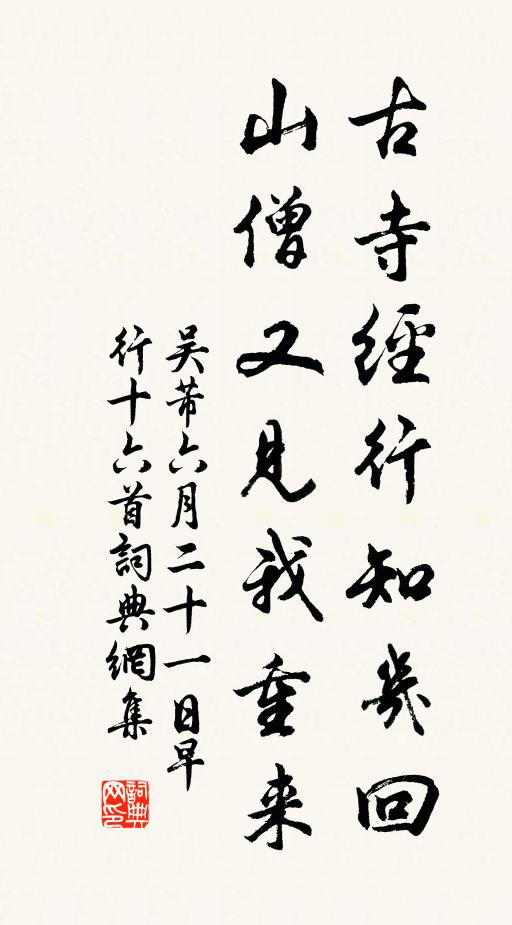 古寺經行知幾回
山僧又見我重来
吴芾六月二十一日早
行十六首詞典網集
詞典网印